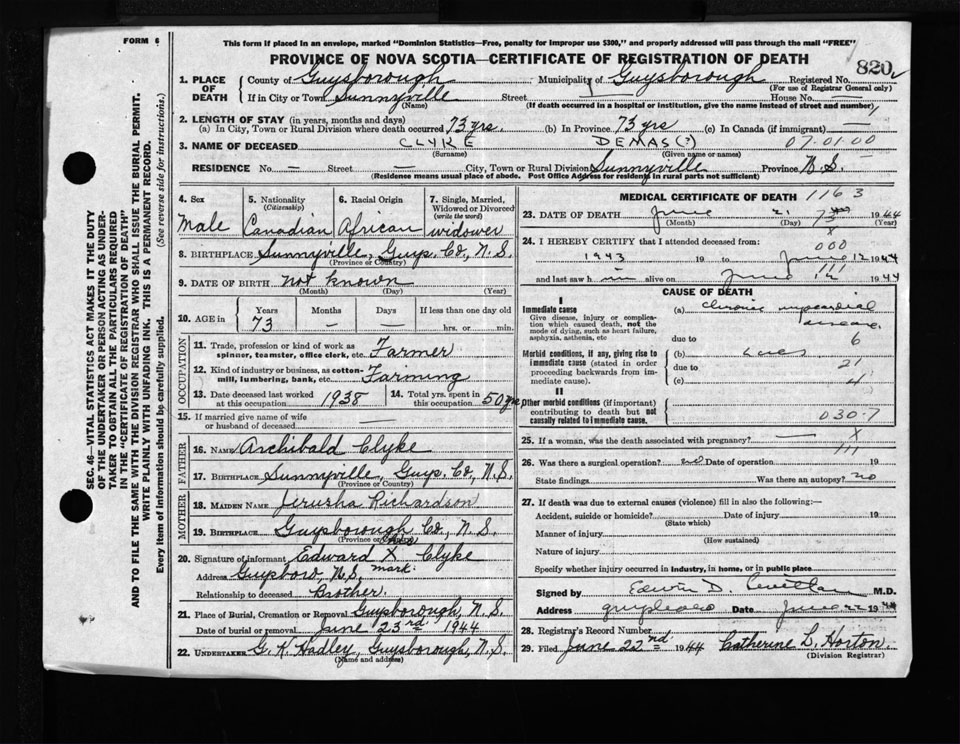 FORM 6
This form if placed in an envelope, marked "Dominion Statistics—Free, penalty for improper use $300," and properly addressed will pass through the mail "FREE"
PROVINCE OF NOVA SCOTIA—CERTIFICATE OF REGISTRATION OF DEATH
820
1. PLACE OF DEATH
County of Guysborough Municipality of Guysborough Registered No.
(For use of Registrar General only)
If in City or Town Sunnyville Street — House No. —
(Name) (If death occurred in a hospital or institution, give the name instead of street and number)
2. LENGTH OF STAY (in years, months and days)
(a) In City, Town or Rural Division where death occurred 73 yrs. (b) In Province 73 yrs (c) In Canada (if immigrant) —
3. NAME OF DECEASED CLYKE DEMAS (?) 07.01.00
(Surname) (Given name or names)
RESIDENCE No. — Street — City, Town or Rural Division Sunnyville Province N.S.
(Residence means usual place of abode. Post Office Address for residents in rural parts not sufficient)
4. Sex Male
5. Nationality (Citizenship) Canadian
6. Racial Origin African
7. Single, Married, Widowed or Divorced (write the word) widower
8. BIRTHPLACE Sunnyville, Guys. Co., N.S.
(Province or Country)
9. DATE OF BIRTH not known
(Month) (Day) (Year)
10. AGE in Years 73 Months — Days — If less than one day old hrs. or min.
OCCUPATION
11. Trade, profession or kind of work as spinner, teamster, office clerk, etc. Farmer
12. Kind of industry or business, as cotton-mill, lumbering, bank, etc. Farming
13. Date deceased last worked at this occupation 1938
14. Total yrs. spent in this occupation 50 yrs
15. If married give name of wife or husband of deceased —
FATHER
16. NAME Archibald Clyke
17. BIRTHPLACE Sunnyville, Guys. Co., N.S.
(Province or Country)
MOTHER
18. MAIDEN NAME Jerusha Richardson
19. BIRTHPLACE Guysborough Co., N.S.
(Province or Country)
20. Signature of informant Edward X Clyke
mark.
Address Guysboro, N.S.
Relationship to deceased Brother.
21. Place of Burial, Cremation or Removal Guysborough, N.S.
Date of burial or removal June 23rd 1944
22. UNDERTAKER G. K. Hadley, Guysborough, N.S.
(Name and address)
MEDICAL CERTIFICATE OF DEATH 1163
23. DATE OF DEATH June 21 1944
(Month) (Day) (Year)
24. I HEREBY CERTIFY that I attended deceased from:
000
1943 19 to June 12 1944
and last saw h im alive on June 12 1944
CAUSE OF DEATH
I
Immediate cause
Give disease, injury or complication which caused death, not the mode of dying, such as heart failure, asphyxia, asthenia, etc
(a) Chronic myocardial disease.
due to 6
Morbid conditions, if any, giving rise to immediate cause (stated in order proceeding backwards from immediate cause).
(b) Lues
due to 21
(c) 4
II
Other morbid conditions (if important) contributing to death but not causally related to immediate cause.
030.7
25. If a woman, was the death associated with pregnancy? — X
26. Was there a surgical operation? no Date of operation 19
State findings Was there an autopsy? no
27. If death was due to external causes (violence) fill in also the following:—
Accident, suicide or homicide? Date of injury 19
(State which)
Manner of injury
(How sustained)
Nature of injury
Specify whether injury occurred in industry, in home, or in public place
Signed by Edwin D. M.D.
Address Guysboro Date June 22 1944
28. Registrar's Record Number
29. Filed June 22nd 1944 Catherine L. Horton.
(Division Registrar)
SEC. 46—VITAL STATISTICS ACT MAKES IT THE DUTY
OF THE UNDERTAKER OR PERSON ACTING AS UNDER-
TAKER TO OBTAIN ALL THE PARTICULARS REQUIRED
IN THE "CERTIFICATE OF REGISTRATION OF DEATH"
AND TO FILE THE SAME WITH THE DIVISION REGISTRAR WHO SHALL ISSUE THE BURIAL PERMIT.
WRITE PLAINLY WITH UNFADING INK. THIS IS A PERMANENT RECORD.
Every item of information should be carefully supplied. (See reverse side for instructions.)